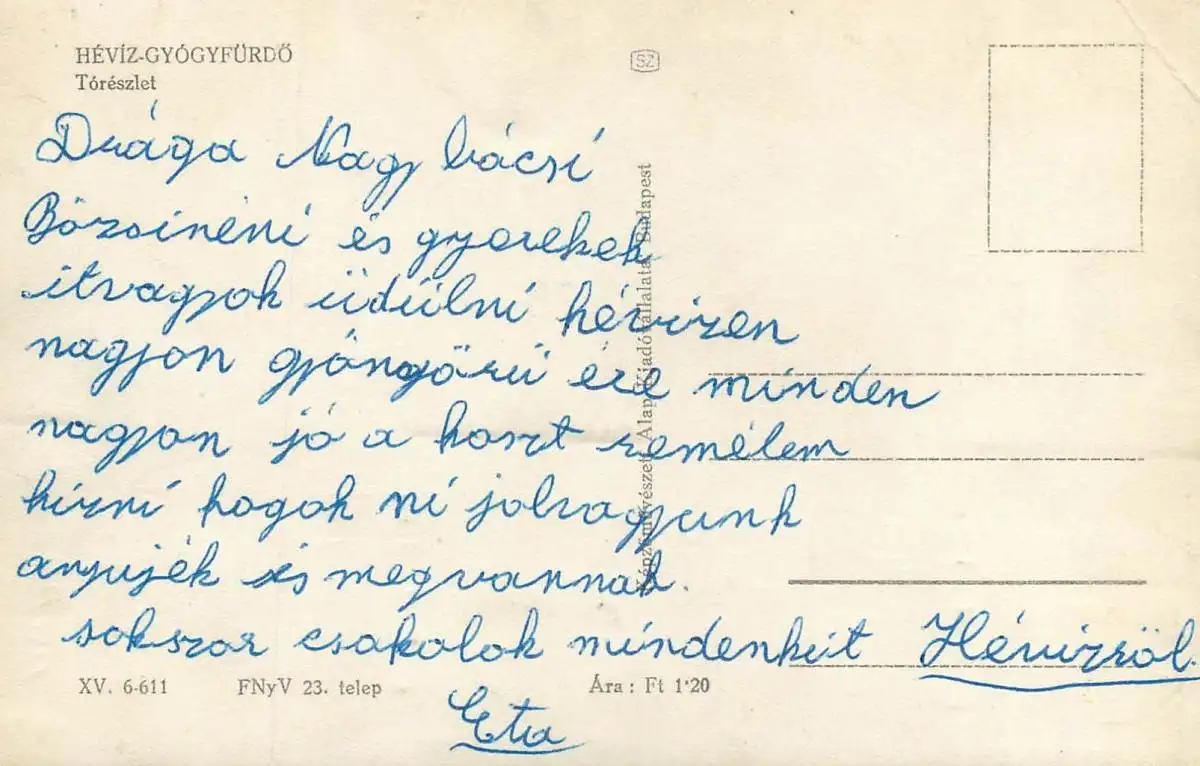 HÉVÍZ-GYÓGYFÜRDŐ
Tórészlet
SZ
Drága Nagy bácsí
Bözsinéní és gyerekek
itvagyok üdülní hévizen
nagjon gjöngörü ére mínden
nagjon jó a koszt remélem
hízní fogok ní jolvagyunk
anyujék is megvannak.
sokszor csakolok míndenkit Hévizröl.
Eta
Képzőművészeti Alap Kiadóvállalata, Budapest
XV. 6-611 FNyV 23. telep Ára: Ft 1·20